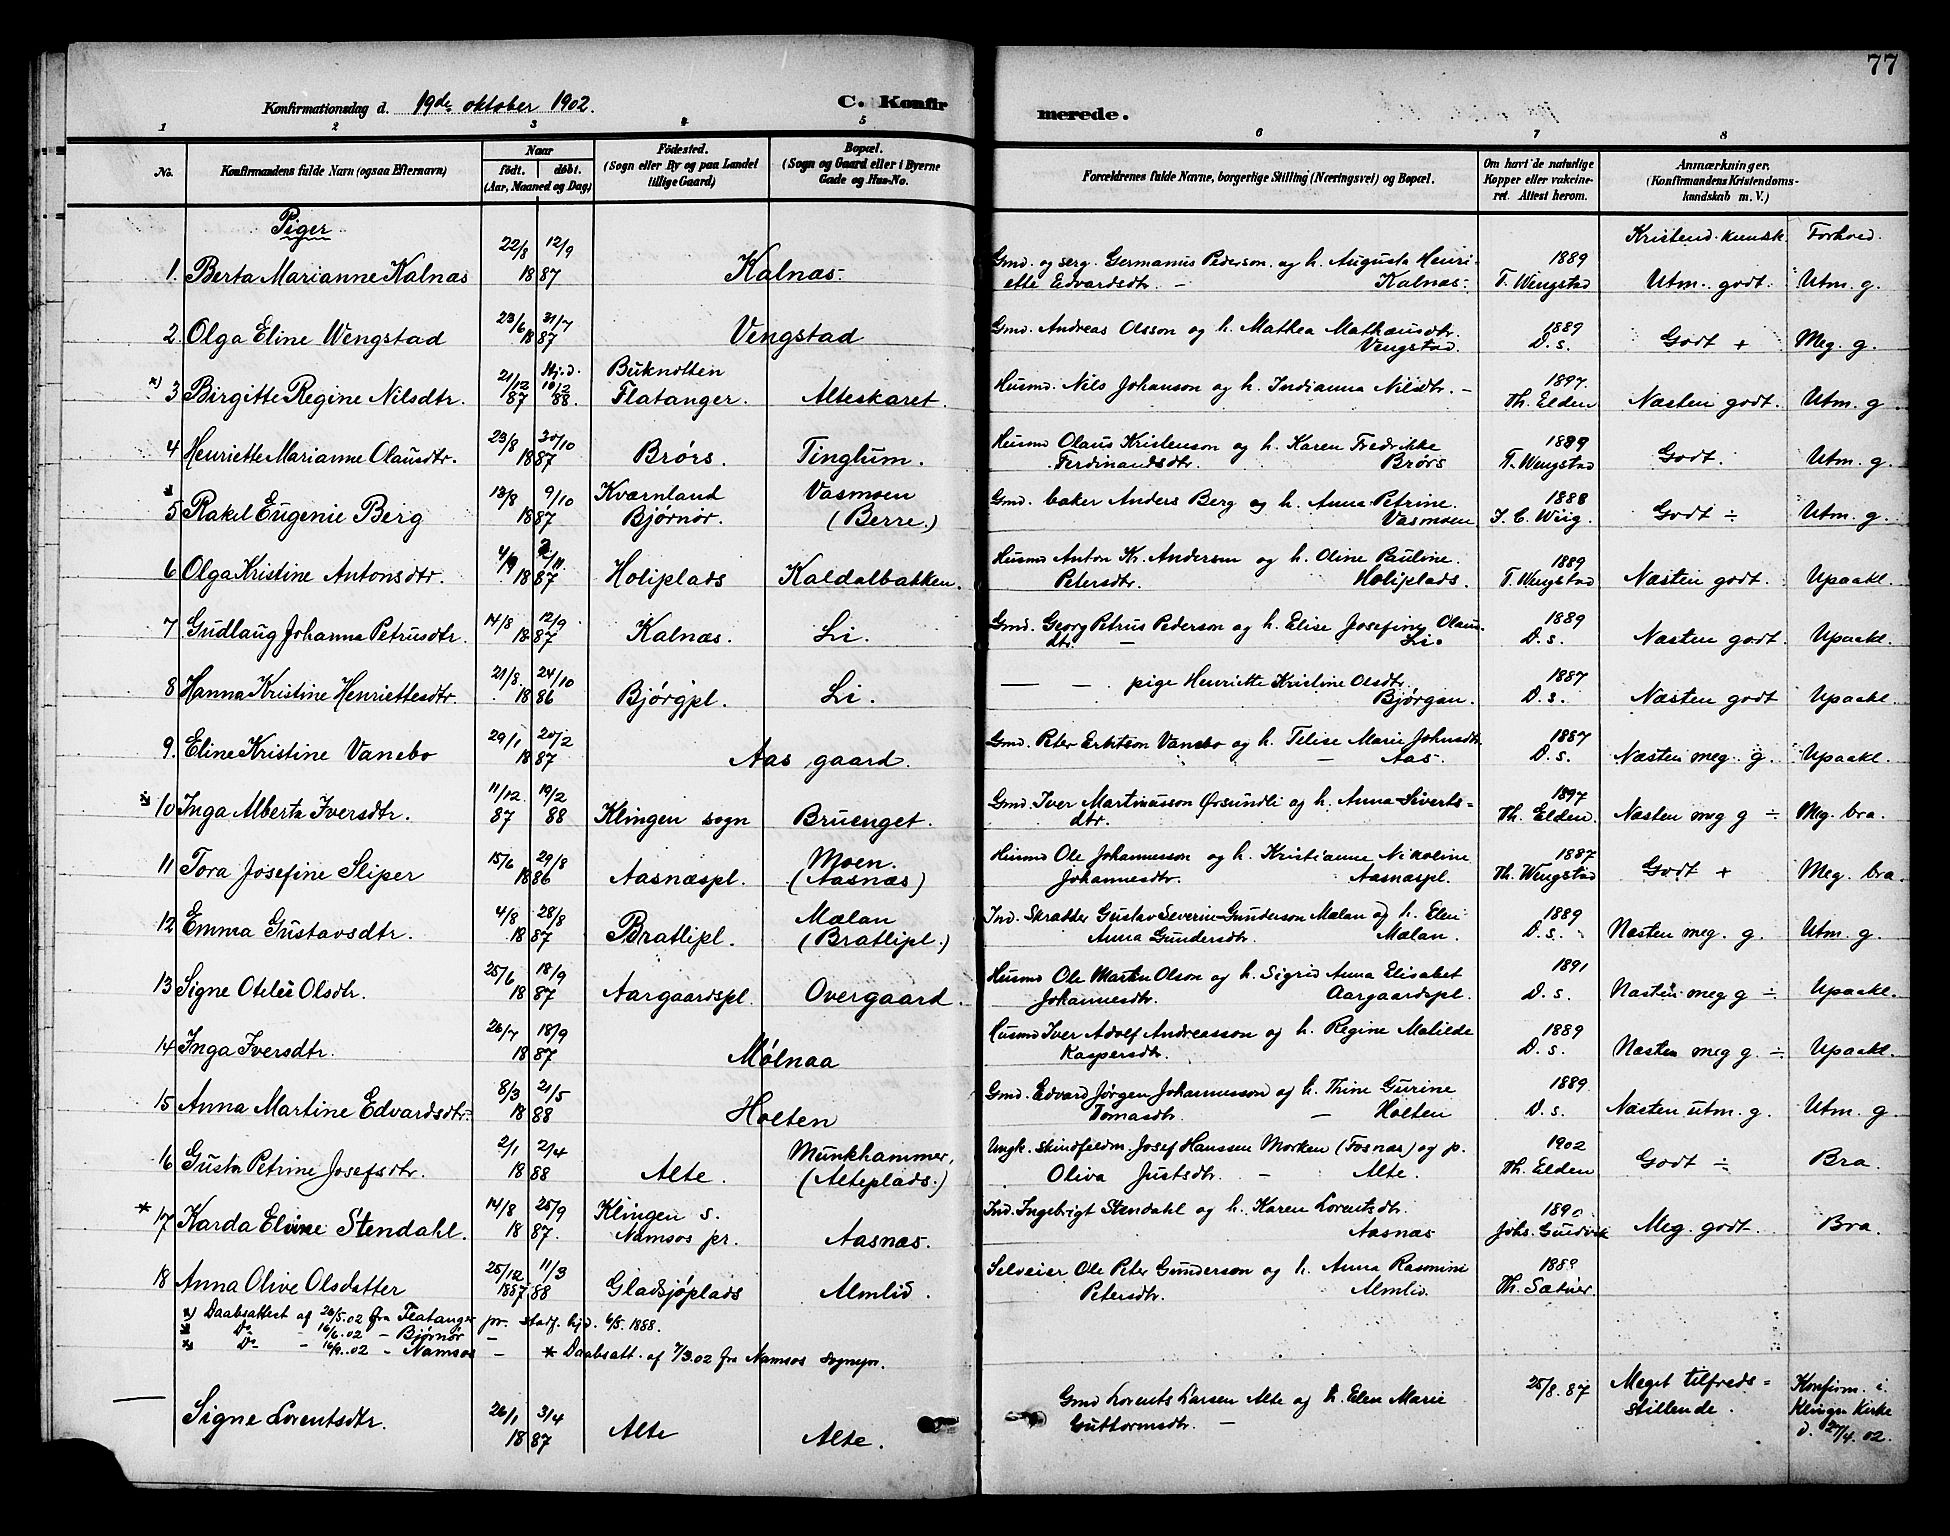 77
Konfirmationsdag d. 19de oktober 1902.
C. Konfirmerede.
1 2 3 4 5 6 7 8
No.
Konfirmandens fulde Navn (ogsaa Efternavn)
Naar
født. døbt.
(Aar, Maaned og Dag)
Fødested.
(Sogn eller By og paa Landet
tillige Gaard)
Bopæl.
(Sogn og Gaard eller i Byerne
Gade og Hus-No.
Forældrenes fulde Navne, borgerlige Stilling (Næringsvei) og Bopæl.
Om havt de naturlige
Kopper eller vakcine-
ret. Attest herom.
Anmærkninger.
(Konfirmandens Kristendoms-
kundskab m. V.)
Piger
Kristend.kundsk. Forhold.
22/8 12/9 Gmd. og serg. Germanus Pederson og h. Augusta Henri- 1889
1. Berta Marianne Kalnæs 18 87 Kalnæs. ette Edvardsdtr. – Kalnæs. T. Wengstad Utm. godt. Utm. g.
23/6 31/7 Gmd. Andreas Olsson og h. Mathea Mathæusdtr. 1889
2. Olga Eline Wengstad 18 87 Vengstad Vengstad. D. s. Godt + Meg. g.
21/12 Hj.d. 10/2 Buknotten Husmd. Nils Johanson og h. Indianna Nilsdtr. – 1897.
×) 3 Birgitte Regine Nilsdtr. 87 88. Flatanger. Alteskaret. Th. Elden Næsten godt. Utm. g.
23/8 30/10 Husmd Olaus Kristenson og h. Karen Fredrikke 1889
4 Henriette Marianne Olausdtr. 18 87 Brørs. Tinglum. Ferdinandsdtr. Brørs T. Wengstad Godt. Utm. g.
13/8 9/10 Kværnland Vasmoen Gmd. baker Anders Berg og h. Anna Petrine. 1888
5 Rakel Eugenie Berg 18 87 Bjørnør. (Berre.) Vasmoen J. C. Wiig. Godt ÷ Utm. g.
4/9 2/11 Husmd Anton Kr. Andersen og h. Oline Pauline. 1889
6 Olga Kristine Antonsdtr. 18 87 Holiplads Kaldalbakken. Petersdtr. Holiplads. T. Wengstad Næsten godt. Upaakl.
14/8 12/9 Gmd. Georg Petrus Pederson og h. Elise Josefine Olaus- 1889
7 Gudlaug Johanna Petrusdtr. 18 87 Kalnæs. Li. dtr. – Li. D. s. Næsten godt. Upaakl.
21/8. 24/10 — – pige Henriette Kristine Olsdtr. 1887
8 Hanna Kristine Henriettesdtr. 18 86 Bjørgpl. Li. Bjørgan. D. s. Næsten godt Upaakl.
29/1 20/2 Gmd. Peter Erikson Vanebo og h. Marie Johnsdtr. 1887
9. Eline Kristine Vanebo 18 87 Aas gaard. – Aas. D. s. Næsten meg. g. Upaakl.
11/12 19/2 Gmd. Iver Martinusson Øisundli og h. Anna Siverts- 1897
10 Inga Alberta Iversdtr. 87 88 Klingen sogn Bruenget. dtr. Th. Elden. Næsten meg g ÷ Meg. bra.
15/6 29/8 Moen. Husmd Ole Johannesson og h. Kristianne Nikoline 1887
11 Tora Josefine Sliper 18 86 Aasnæspl. (Aasnæs) Johannesdtr. Aasnæspl. Th. Wengstad Godt + Meg. bra.
4/8 28/8 Mælan Ind. Skrædder Gustav Severin Gunderson Mælan og h. Elen 1889
12 Emma Gustavsdtr. 18 87 Bratlipl. (Bratlipl.) Anna Gundersdtr. Mælan. D. s. Næsten meg. g. Utm. g
25/6 18/9 Husmd Ole Martin Olson og h. Sigrid Anna Elisabet 1891
13 Signe Otelie Olsdtr. 18 87 Aargaardspl. Overgaard. Johannesdtr. Aargaardspl. D. s. Næsten meg g ÷ Upaakl.
26/7 18/9 Husmd Iver Adolf Andreasson og h. Regine Matilde 1889
14 Inga Iversdtr. 18 87 Mølnaa Kaspersdtr. D. s. Næsten meg g. ÷ Upaakl.
8/3 21/5 Gmd. Edvard Jørgen Johannesson og h. Trine Gurine 1889
15 Anna Martine Edvardsdtr. 18 88 Holten Tomasdtr. – Holten D. s. Næsten utm. g. Utm. g
2/1 2/4 Munkhammer. Ungk. skindfeldm. Josef Hanssen Morken (Fosnæs) og p. 1902
16 Gusta Petrine Josefsdtr. 18 88 Alte. (Alteplads.) Oliva Justsdtr. – Alte. Th. Elden Godt ÷ Bra.
14/8 25/9 Klingen s. Ind. Ingebrigt Stendahl og h. Karen Lorentsdtr. 1890
* 17 Karda Elvine Stendahl. 18 87. Namsos pr. Aasnæs. Aasnæs Johs. Meg. godt. Bra.
25/12 11/3 Selveier Ole Peter Gunderson og h. Anna Rasmine 1889
18 Anna Olive Olsdatter 1887 88 Gladsjøplads Almlid. Petersdtr. Almlid. Th. Sætner
×) Daabsattest af 26/5.02 fra Flatanger pr. stadf. hjd. 6/5. 1888.
Do – 16/6.02 – Bjørnør –
Do – 16/9.02 – Namsos – * Daabsatt. af 7/3.02 fra Namsos sognepr.
— 26/1 3/4 Gmd Lorents Larsen Alte og h. Elen Marie 25/8. 87 Meget tilfreds- Konfirm. i
Signe Lorentsdtr. 18 87 Alte Alte. Guttormsdtr. – stillende. Klinga Kirke
d. 27/4. 02.